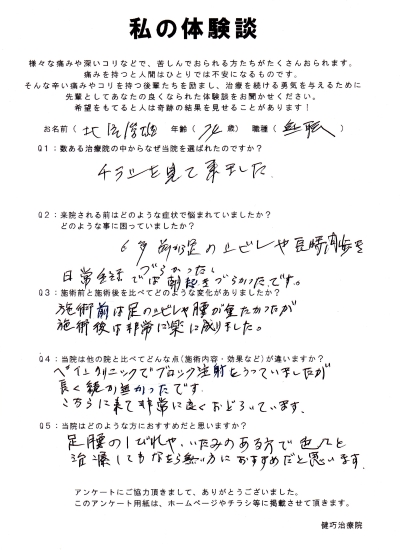 私の体験談
様々な痛みや深いコリなどで、苦しんでおられる方たちがたくさんおられます。
痛みを持つと人間はひとりでは不安になるものです。
そんな辛い痛みやコリを持つ後輩たちを励まし、治療を続ける勇気を与えるために
先輩としてあなたの良くなられた体験談をお聞かせください。
希望をもてると人は奇跡の結果を見せることがあります！
お名前（ 年齢（74歳）職種（無職）
Q1：数ある治療院の中からなぜ当院を選ばれたのですか？
チラシを見て来ました。
Q2：来院される前はどのような症状で悩まれていましたか？
どのような事に困っていましたか？
6年前から足のシビレや長時間歩を
づらかった。
日常生活では朝起きづらかったです。
Q3：施術前と施術後を比べてどのような変化がありましたか？
施術前は足のシビレや腰が重たかったが
施術後は非常に楽に成りました。
Q4：当院は他の院と比べてどんな点(施術内容・効果など)が違いますか？
ペインクリニックでブロック注射をうっていましたが
長く続か無かったです。
こちらに来て非常に良くおどろいています。
Q5：当院はどのような方におすすめだと思いますか？
足腰のしびれや、いたみのある方で色々と
治療してもなおら無い方におすすめだと思います。
アンケートにご協力頂きまして、ありがとうございました。
このアンケート用紙は、ホームページやチラシ等に掲載させて頂きます。
健巧治療院